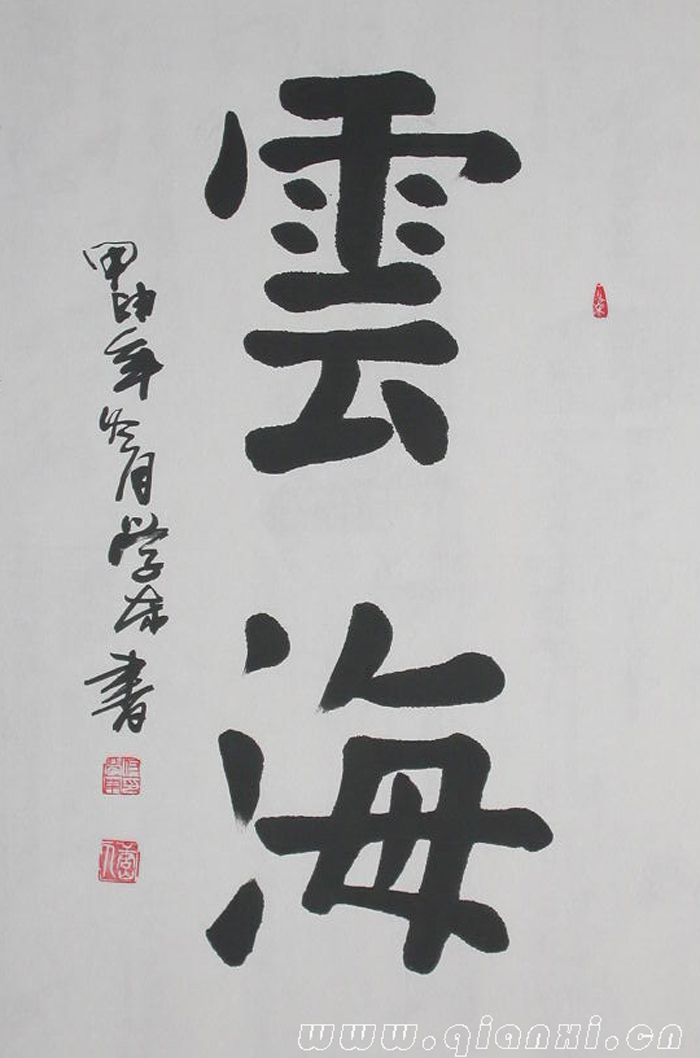 雲海
甲申年冬月学东書
www.qianxi.cn